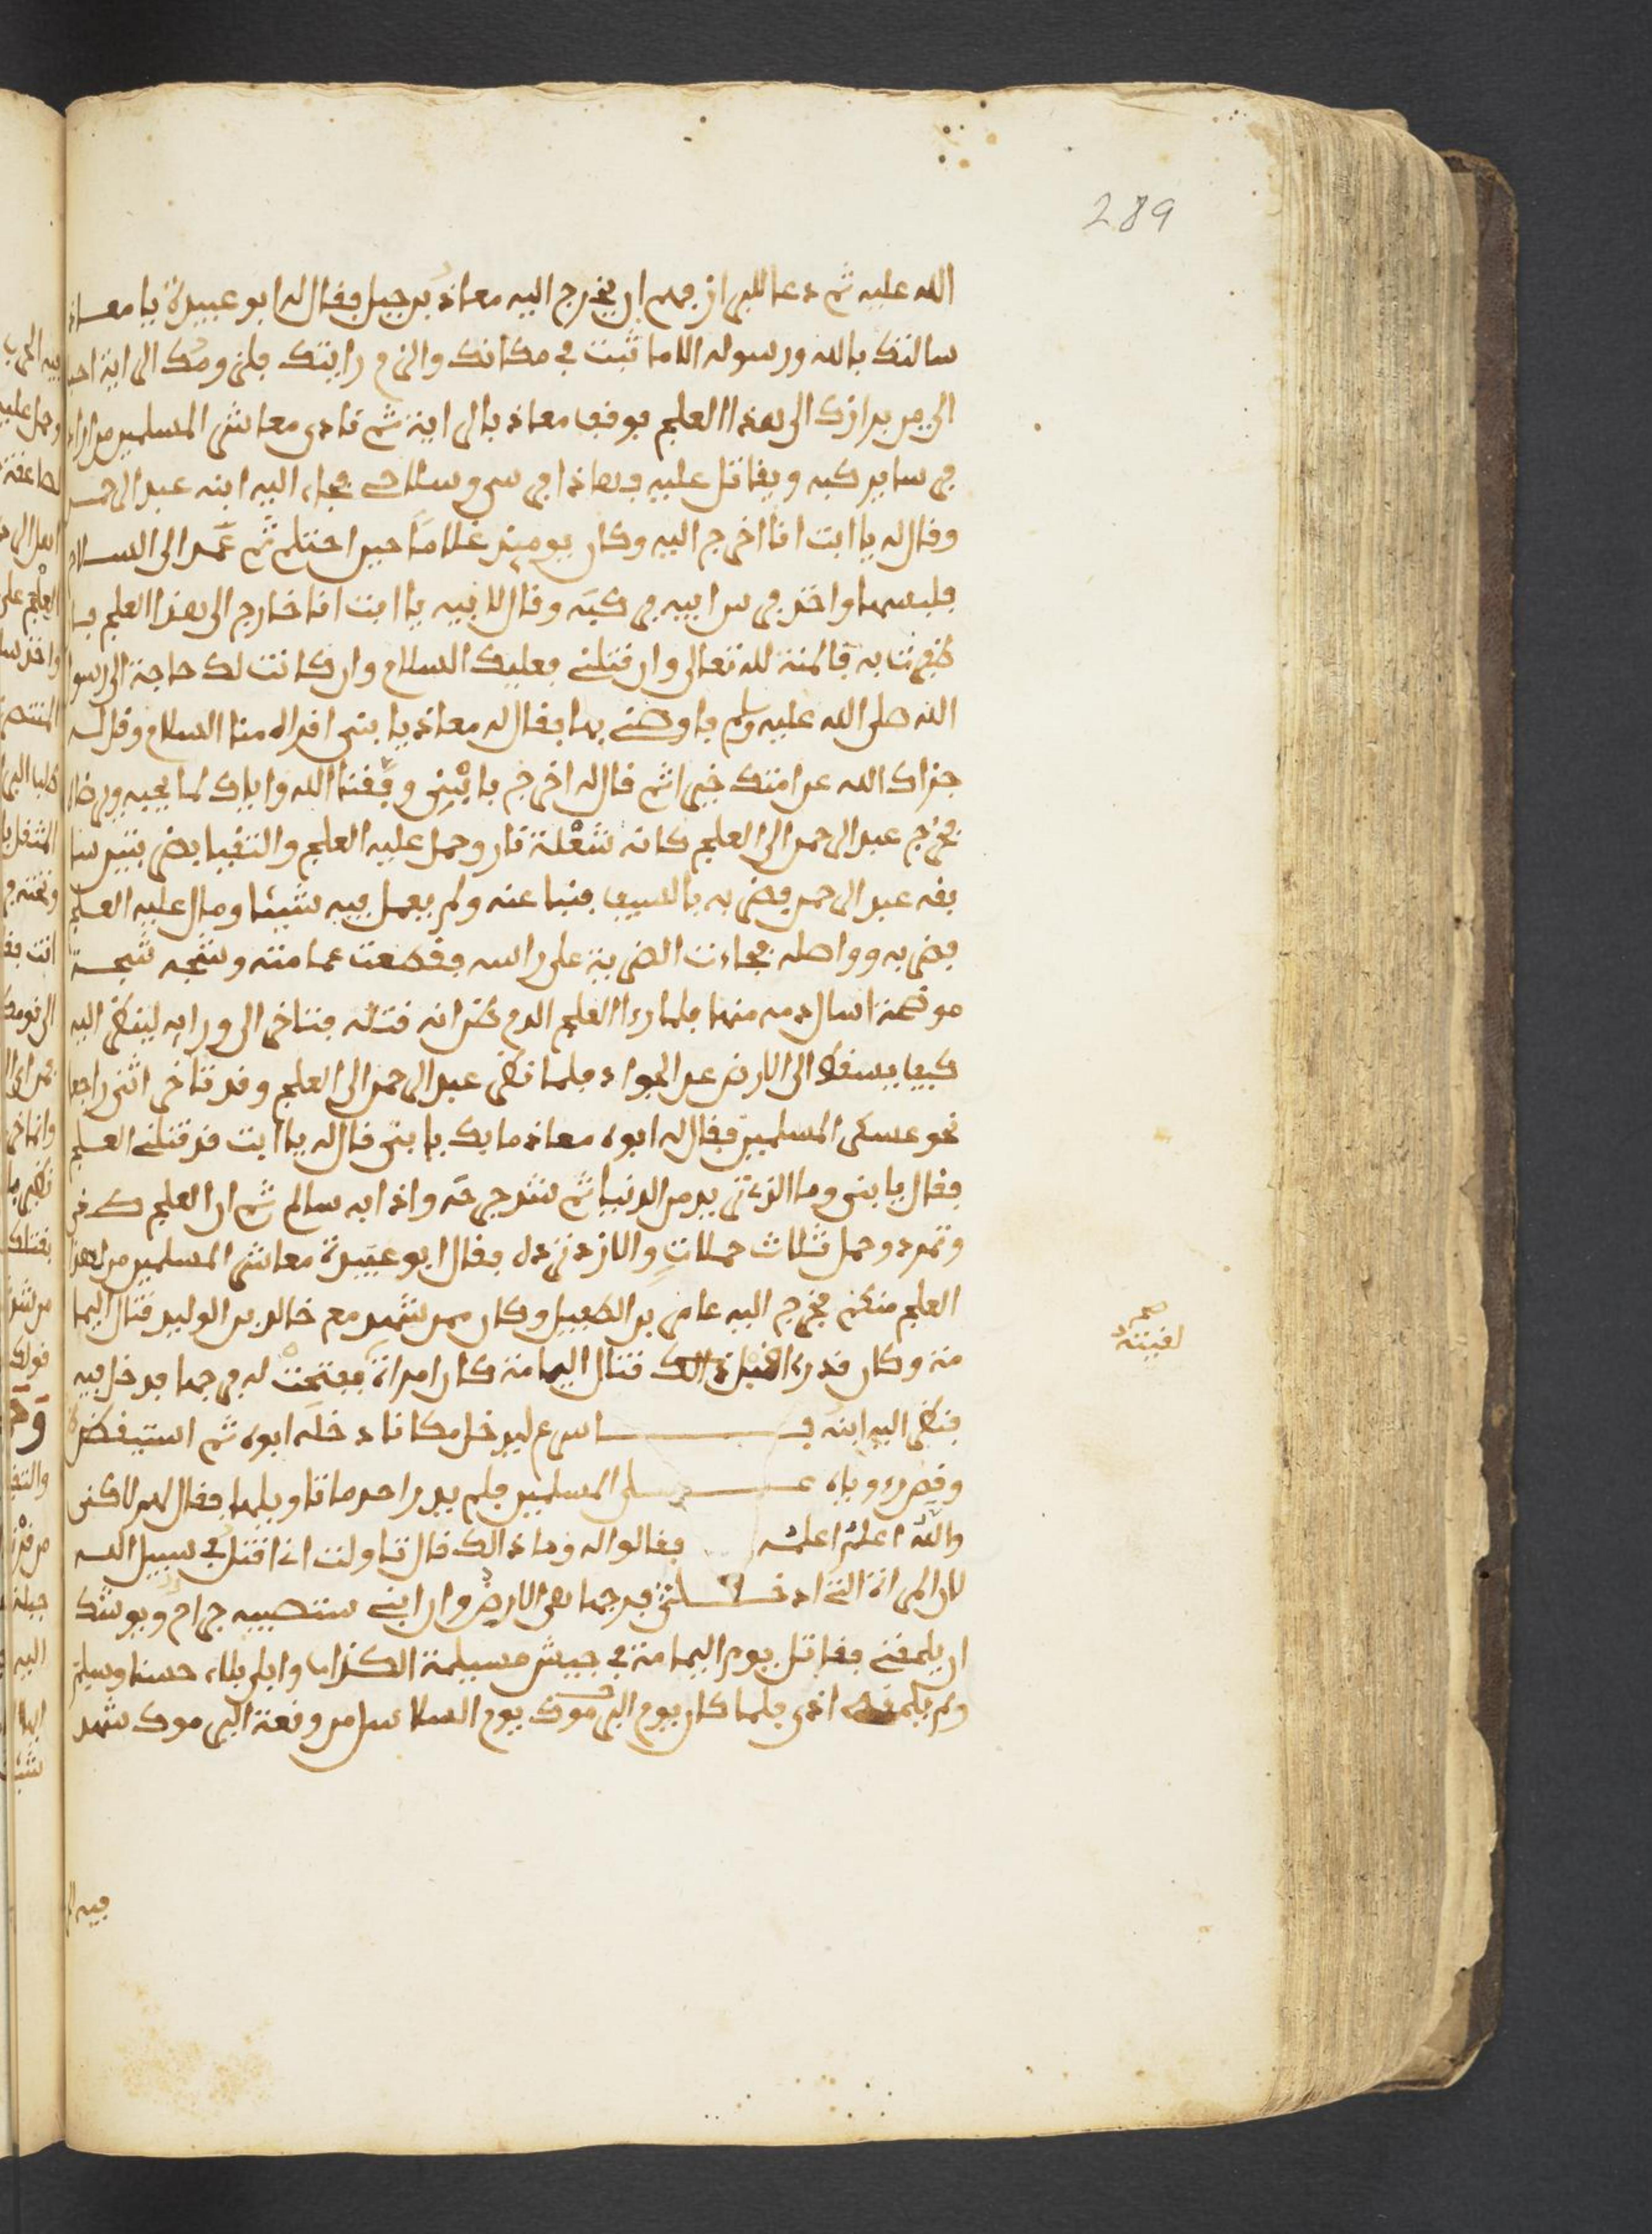 289
الله عليه ثم دعا للبراز فهم ان يخرج اليه معاذ بن جبل فقال له ابو عبيدة يا معاذ
سالتك بالله ورسوله الا ما ثبت في مكانك والزم رايتك فلزومك الراية احب
الي من برازك الى هذا العلج فوقف معاذ بالراية ثم نادى معاشر المسلمين من اراد
فرسا يركبه ويقاتل عليه فهاذا فرسي وسلاحي فجاء اليه ابنه عبد الرحمن
وقال له يا ابت انا اخرج اليه وكان يومئذ غلاما حين احتلم ثم عمد الى السلاح
فلبسها واخذ فرس ابيه فركبه وقال لابيه يا ابت انا خارج الى هذا العلج فان
ظفرت به فالمنة لله تعالى وان قتلني فعليك السلام وان كانت لك حاجة الى رسول
الله صلى الله عليه وسلم فاوصني بها فقال له معاذ يا بني اقراه منا السلام وقل له
جزاك الله عن امتك خيرا ثم قال له اخرج يا بني وفقنا الله واياك لما يحبه ويرضا
فخرج عبد الرحمن الى العلج كانه شعلة نار وحمل عليه العلج والتقيا بضربتين سا
بقه عبد الرحمن فضربه بالسيف فنبا عنه ولم يعمل فيه شيئا ومال عليه العلج
فضربه وواصله فجاءت الضربة على راسه فقطعت عمامته وشجه شجة
موضحة اسال دمه منها فلما را العلج الدم ظن انه قتله فتاخر الى ورايه لينظر اليه
كيف يسقط الى الارض عن الجواد فلما نظر عبد الرحمن الى العلج وقد تاخر انثنى راجعا
نحو عسكر المسلمين فقال له ابوه معاذ ما بك يا بني قال له يا ابت قد قتلني العلج
فقال يا بني وما الذي تريد من الدنيا ثم شد جرحه واذا به سالم ثم ان العلج كفر
وتمرد وحمل ثلاث حملات والازد تردد فقال ابو عبيدة معاشر المسلمين من لهذا
العلج منكم فخرج اليه عامر بن الطفيل وكان ممن شهد مع خالد بن الوليد قتال اليما
مة وكان قد را قبل ذالك قتال اليمامة كان امراة ففتحت له فرجها فدخل فيه
فنظر اليه ابنه فاسرع ليدخل مكانا دخله ابوه ثم استيقظ
وقص روياه على المسلمين فلم يدر احد ما تاويلها فقال لهم لاكن
والله اعلم اعلمه فقالوا له وما ذالك قال تاولت اني اقتل في سبيل الله
لان المراة التي ادخلتني فرجها هي الارض وان ابني ستصيبه جراح ويوشك
ان يلحقني فقاتل يوم اليمامة في جيش مسيلمة الكذاب وابلى بلاء حسنا وسلم
ولم يلحقه اذى فلما كان يوم اليرموك يوم السلاسل من وقعة اليرموك شهد
صح
لقيته